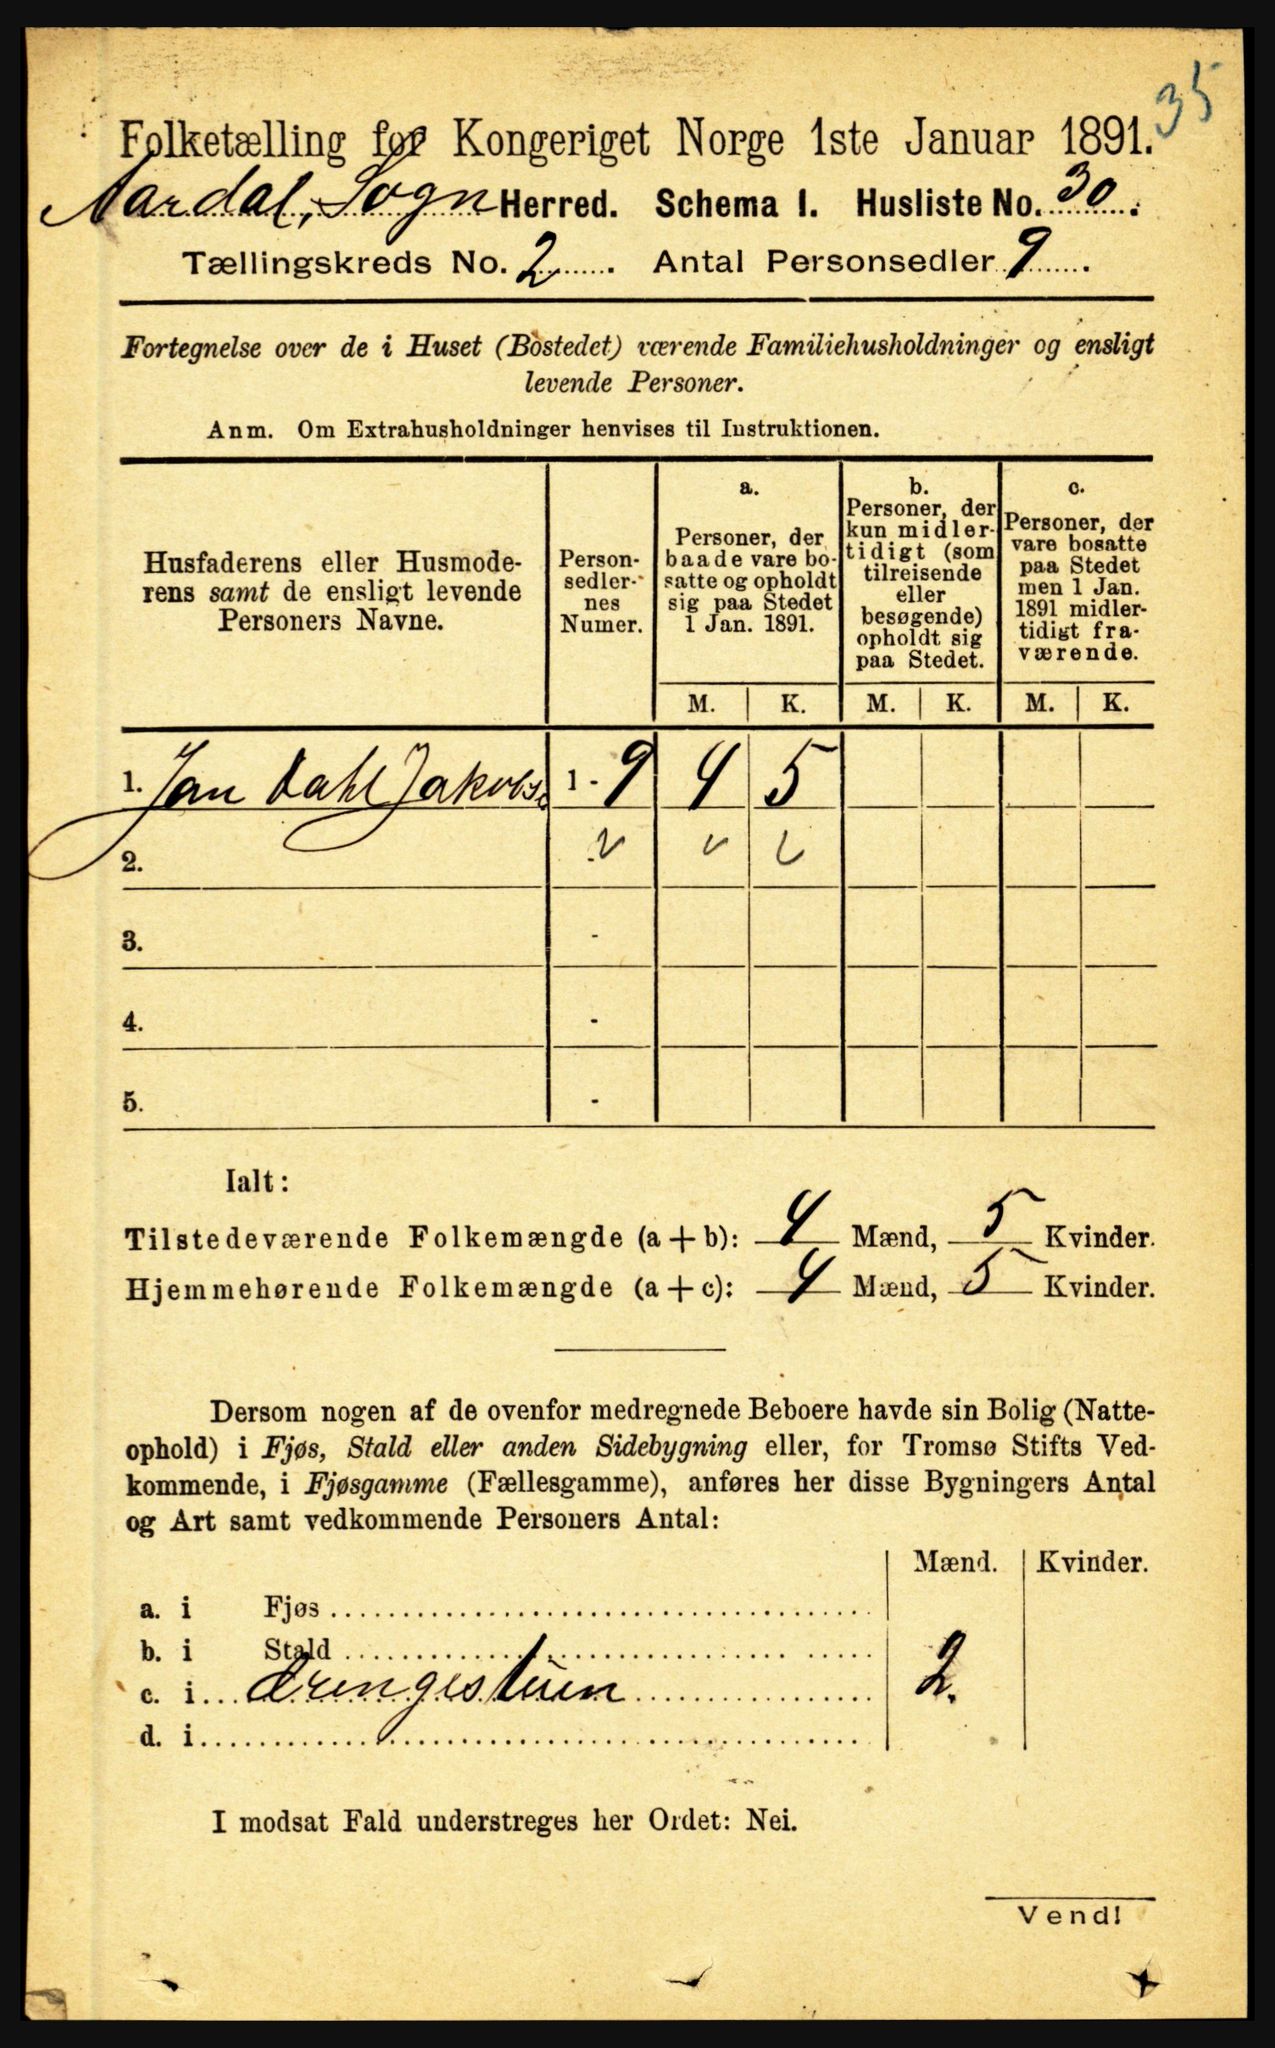 35
Folketælling for Kongeriget Norge 1ste Januar 1891.
Aardal, Sogn Herred. Schema I. Husliste No. 30.
Tællingskreds No. 2. Antal Personsedler 9.
Fortegnelse over de i Huset (Bostedet) værende Familiehusholdninger og ensligt
levende Personer.
Anm. Om Extrahusholdninger henvises til Instruktionen.
Husfaderens eller Husmode-
rens samt de ensligt levende
Personers Navne.
Person-
sedler-
nes
Numer.
a.
Personer, der
baade vare bo-
satte og opholdt
sig paa Stedet
1 Jan. 1891.
b.
Personer, der
kun midler-
tidigt (som
tilreisende
eller
besøgende)
opholdt sig
paa Stedet.
c.
Personer, der
vare bosatte
paa Stedet
men 1 Jan.
1891 midler-
tidigt fra-
værende.
M. K. M. K. M. K.
1. Jan Dahl Jakobs. 1 - 9 4 5
2. -
3. -
4. -
5. -
Ialt:
Tilstedeværende Folkemængde (a + b): 4 Mænd, 5 Kvinder.
Hjemmehørende Folkemængde (a + c): 4 Mænd, 5 Kvinder.
Dersom nogen af de ovenfor medregnede Beboere havde sin Bolig (Natte-
ophold) i Fjøs, Stald eller anden Sidebygning eller, for Tromsø Stifts Ved-
kommende, i Fjøsgamme (Fællesgamme), anføres her disse Bygningers Antal
og Art samt vedkommende Personers Antal:
Mænd. Kvinder.
a. i Fjøs
b. i Stald
c. i drengestuen 2.
d. i
I modsat Fald understreges her Ordet: Nei.
Vend!